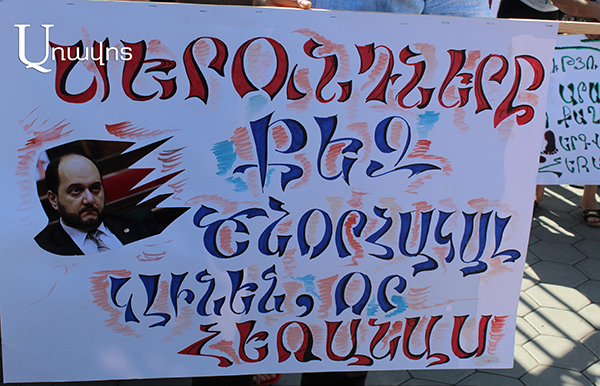 Առավոտ
ՍԵՐՈՒՆԴՆԵՐԸ
ՔԵԶ
ՇՆՈՐՀԱԿԱԼ
ԿԼԻՆԵՆ, ՈՐ
ՀԵՌԱՆԱՍ